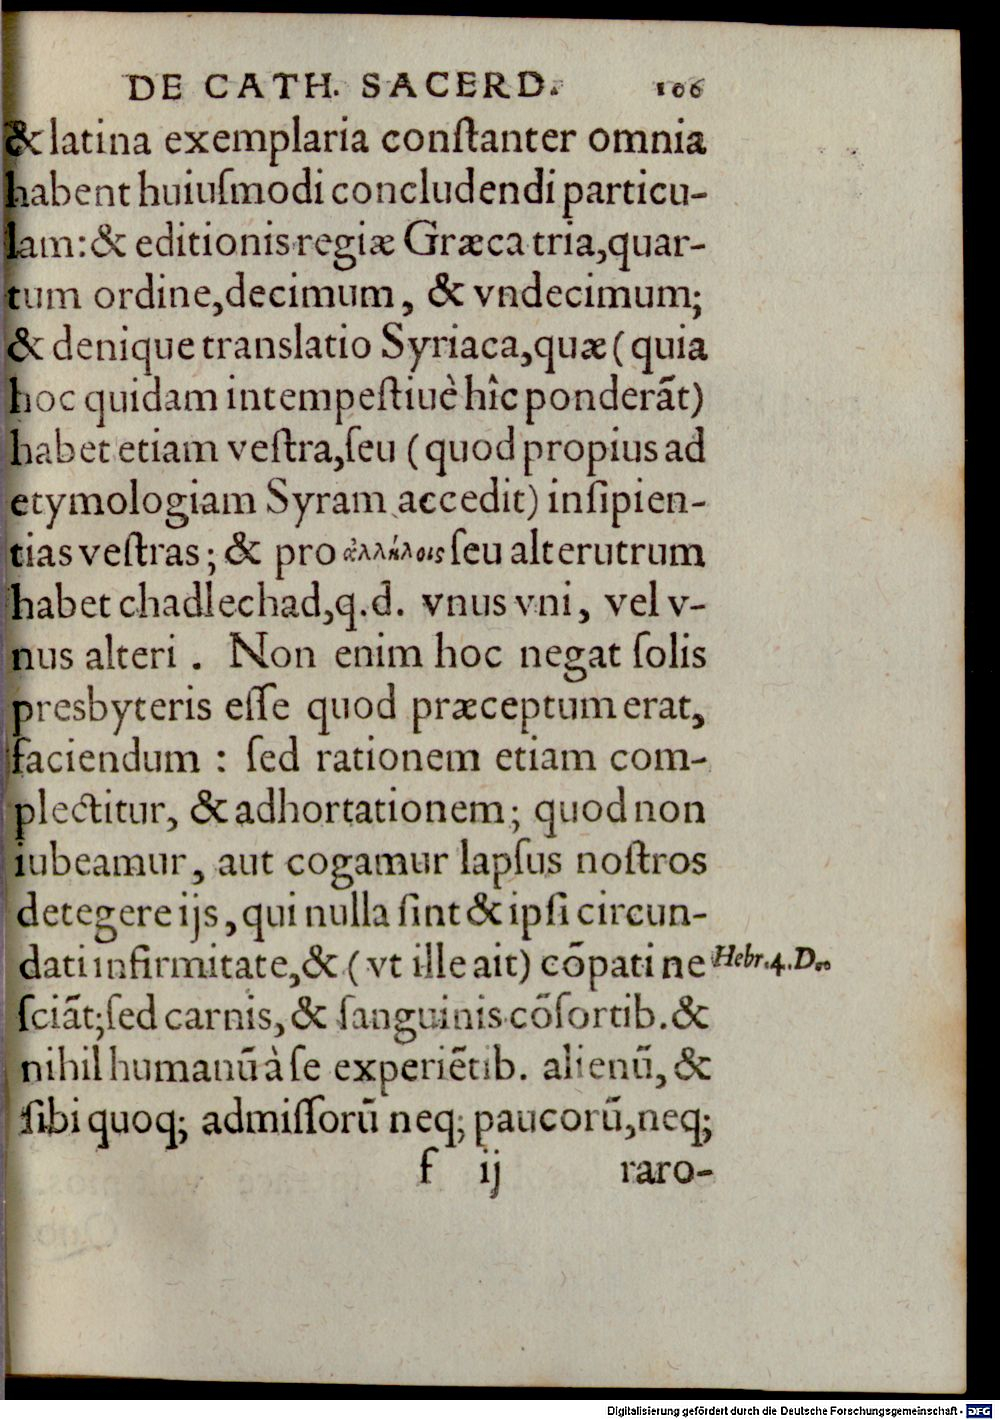 DE CATH. SACERD. 106
& latina exemplaria conſtanter omnia
habent huiuſmodi concludendi particu-
lam: & editionis regiæ Græca tria, quar-
tum ordine, decimum, & vndecimum;
& denique translatio Syriaca, quæ (quia
hoc quidam intempeſtiuè hîc ponderãt)
habet etiam veſtra, ſeu (quod propius ad
etymologiam Syram accedit) inſipien-
tias veſtras; & pro ἀλλήλοις ſeu alterutrum
habet chadlechad, q.d. vnus vni, vel v-
nus alteri. Non enim hoc negat ſolis
presbyteris eſſe quod præceptum erat,
faciendum: ſed rationem etiam com-
plectitur, & adhortationem; quod non
iubeamur, aut cogamur lapſus noſtros
detegere ijs, qui nulla ſint & ipſi circun-
dati infirmitate, & (vt ille ait) cõpati ne Hebr. 4. D.
ſciãt; ſed carnis, & ſanguinis cõſortib. &
nihil humanũ à ſe experiẽtib. alienũ, &
ſibi quoq; admiſſorũ neq; paucorũ, neq;
f ij raro-
Digitalisierung gefördert durch die Deutsche Forschungsgemeinschaft - DFG